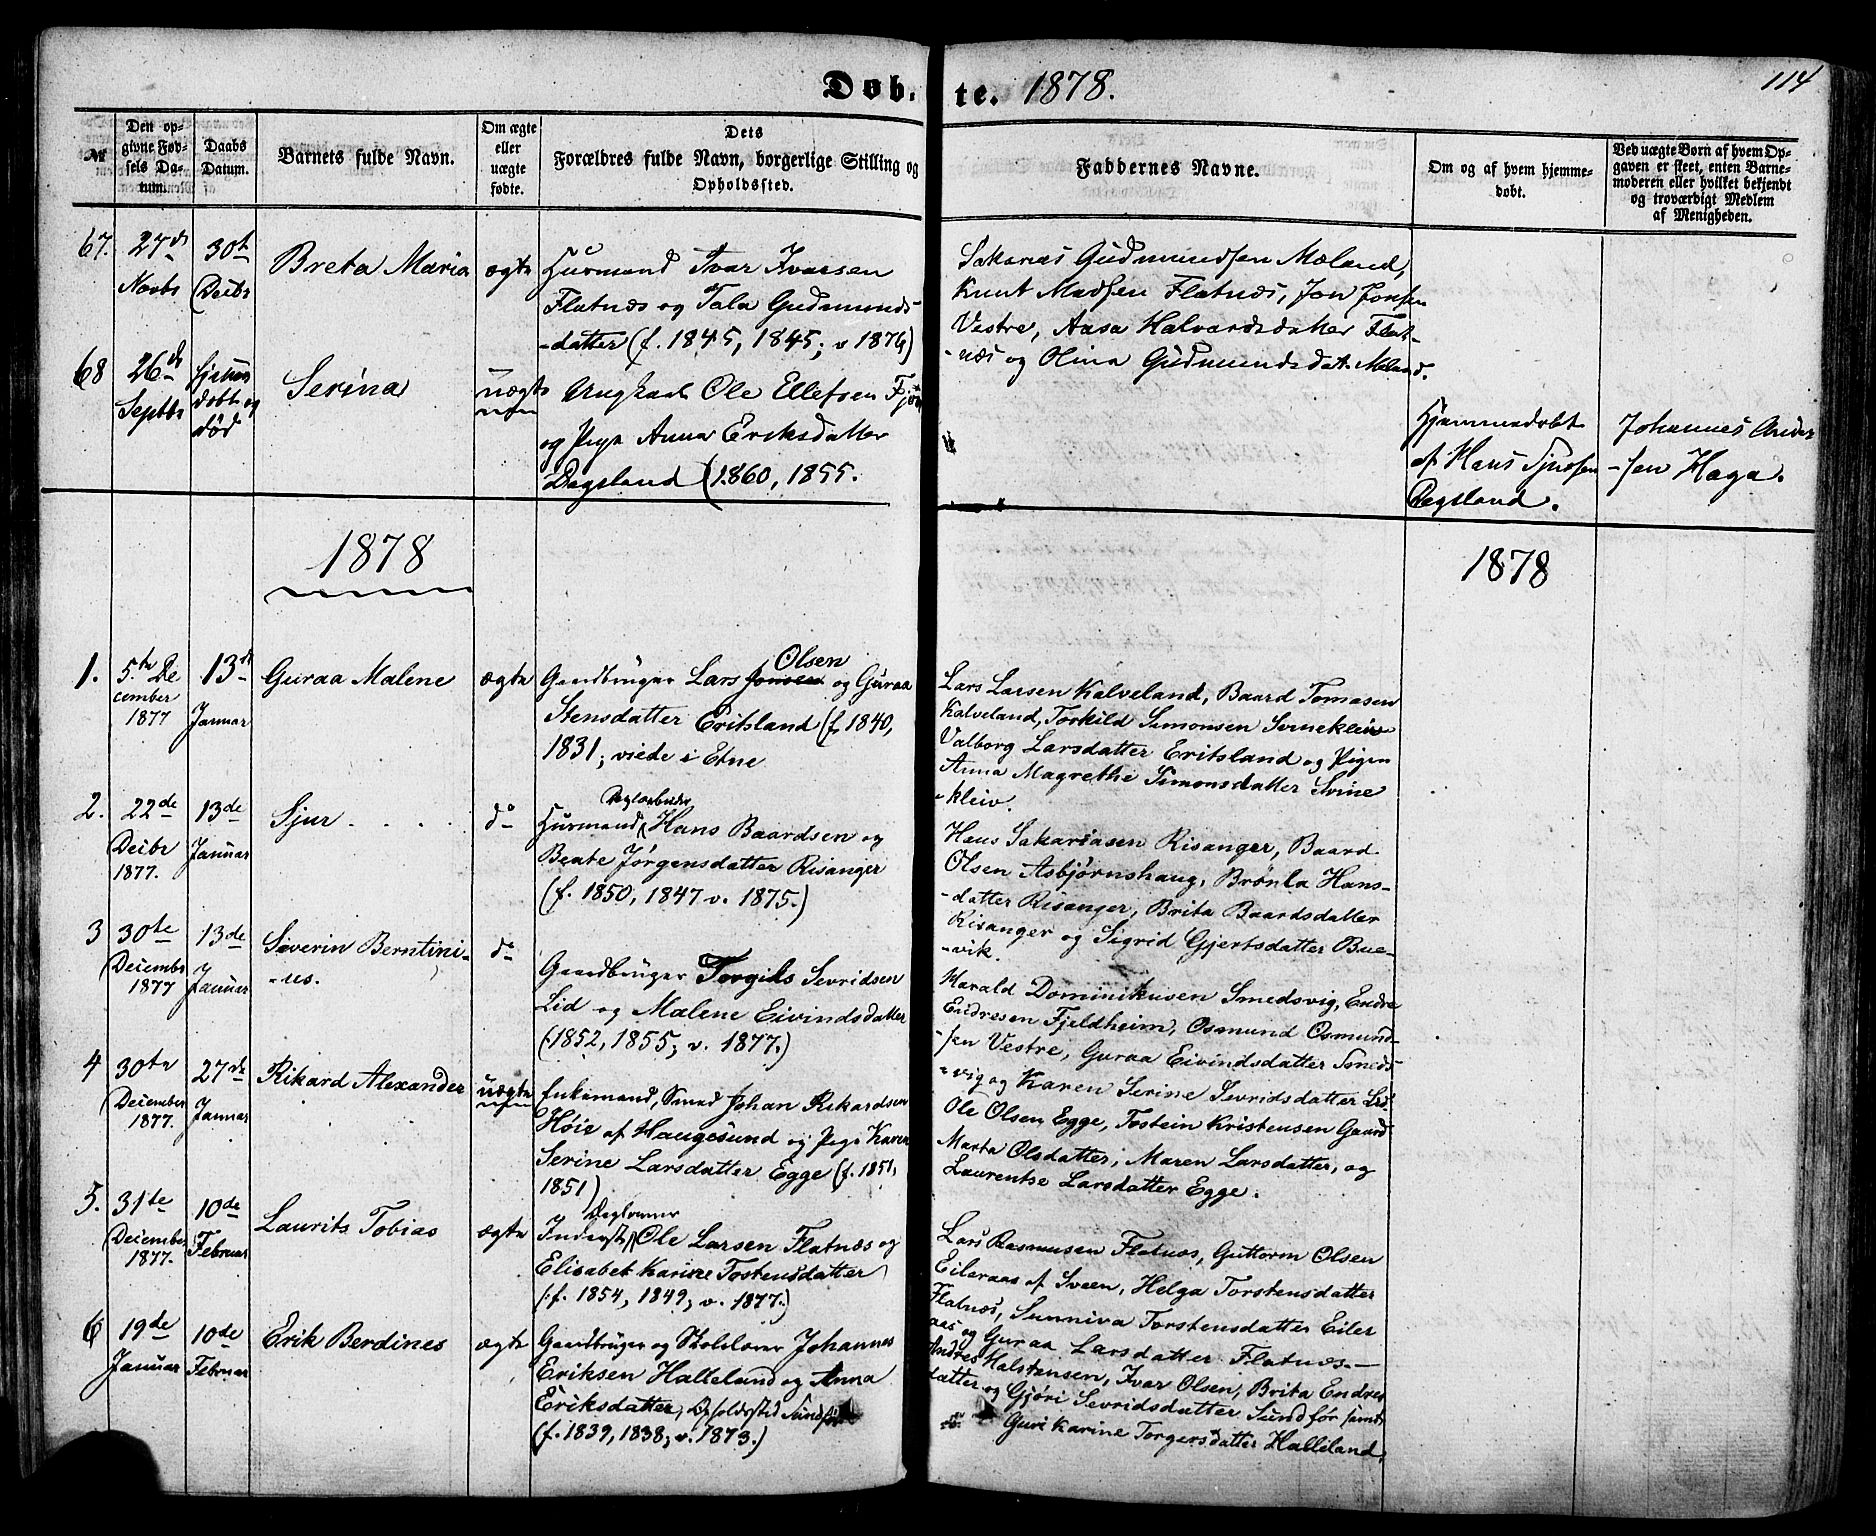 Døb-te. 1878.
114
№
Den op-
givne Fød-
sels Da-
tum.
Daabs
Datum.
Barnets fulde Navn.
Om ægte
eller
uægte
fødte.
Dets
Forældres fulde Navn, borgerlige Stilling og
Opholdssted.
Faddernes Navne.
Om og af hvem hjemme-
døbt.
Ved uægte Børn af hvem Op-
gaven er skeet, enten Barne-
moderen eller hvilket bekjendt
og troværdigt Medlem
af Menigheden.
67.
27de
Novbr
30te
Decbr
Breta Maria
ægte
Huusmand Ivar Ivarsen
Flatnæs og Tala Gudmunds-
-datter (f. 1845, 1845; v 1876)
Sakarias Gudmundsen Mæland,
Knut Madsen Flatnæs, Jon Jonsen
Vestre, Aasa Halvardsdatter Flat-
-næs og Olina Gudmundsdat. Mæland.
68
26de
Septbr
Hjemme
døbt og
død
Serina
uægte
Ungkarl Ole Ellefsen
og Pige Anna Eriksdatter
Dagsland (1860, 1855.
Hjemmedøbt
af Hans Sjursen
Dagsland.
Johannes Ander
-sen Haga.
1878
1878
1.
5te De
cember
1877
13de
Januar
Guraa Malene
ægte
Gaardbruger Lars Olsen og Guraa
Stensdatter Eritsland (f. 1840,
1831; viede i Etne
Lars Larsen Kalveland, Baard Tomasen
Kalveland, Torkild Simonsen Svinekleiv
Valborg Larsdatter Eritsland og Pigen
Anna Magrethe Simonsdatter Svine
-kleiv.
2.
22de
Decbr
1877.
13de
Januar
Sjur
do
Huusmand, Hans Baardsen og
Beate Jørgensdatter Risanger
(f. 1850, 1847 v. 1875.)
Hans Sakariasen Risanger, Baard
Olsen Asbjørnshaug, Brønla Hans-
-datter Risanger, Brita Baardsdatter
Risanger og Sigrid Gjertsdatter Bue-
-vik.
3
30te
Decembr
1877
13de
Januar
Severin Berntini-
-us.
do
Gaardbruger Torgils Sevridsen
Lid og Malene Eivindsdatter
(1852, 1855; v. 1877.)
Harald Dominikusen Smedsvig, Endre
Endresen Fjeldheim, Osmund Osmund-
-sen Vestre, Guraa Eivindsdatter Smeds-
-vig og Karen Serine Sevridsdatter Lid.
4
30te
December
1877.
27de
Januar
Rikard Alexander
uægte
Enkemand, Smed Johan Rikardsen
Høie af Haugesund og Pige Karen
Serine Larsdatter Egge (f. 1851,
1851)
Ole Olsen Egge, Tostein Kristensen Gaard
Marta Olsdatter, Maren Larsdatter, og
Laurentse Larsdatter Egge.
5.
31te
December
1877.
10de
Februar
Laurits Tobias
ægte
Inderst, Ole Larsen Flatnæs og
Elisabet Karine Tostensdatter
(f. 1854, 1849, v. 1877.)
Lars Rasmusen Flatnæs, Guttorm Olsen
Eileraas af Sveen, Helga Torstensdatter
Flatnæs, Sunniva Torstensdatter Eiler
aas og Guraa Larsdatter Flatnæs.
6
19de
Januar
10de
Februar
Erik Berdines
ægte
Gaardbruger og Skolelærer Johannes
Eriksen Halleland og Anna
Eriksdatter, Opholdssted Sundfør
(f. 1839, 1838; v. 1873.)
Andres Halstensen, Ivar Olsen, Brita Endres
datter og Gjøri Sevridsdatter Sundfør samt
Guri Karine Torgersdatter Halleland,